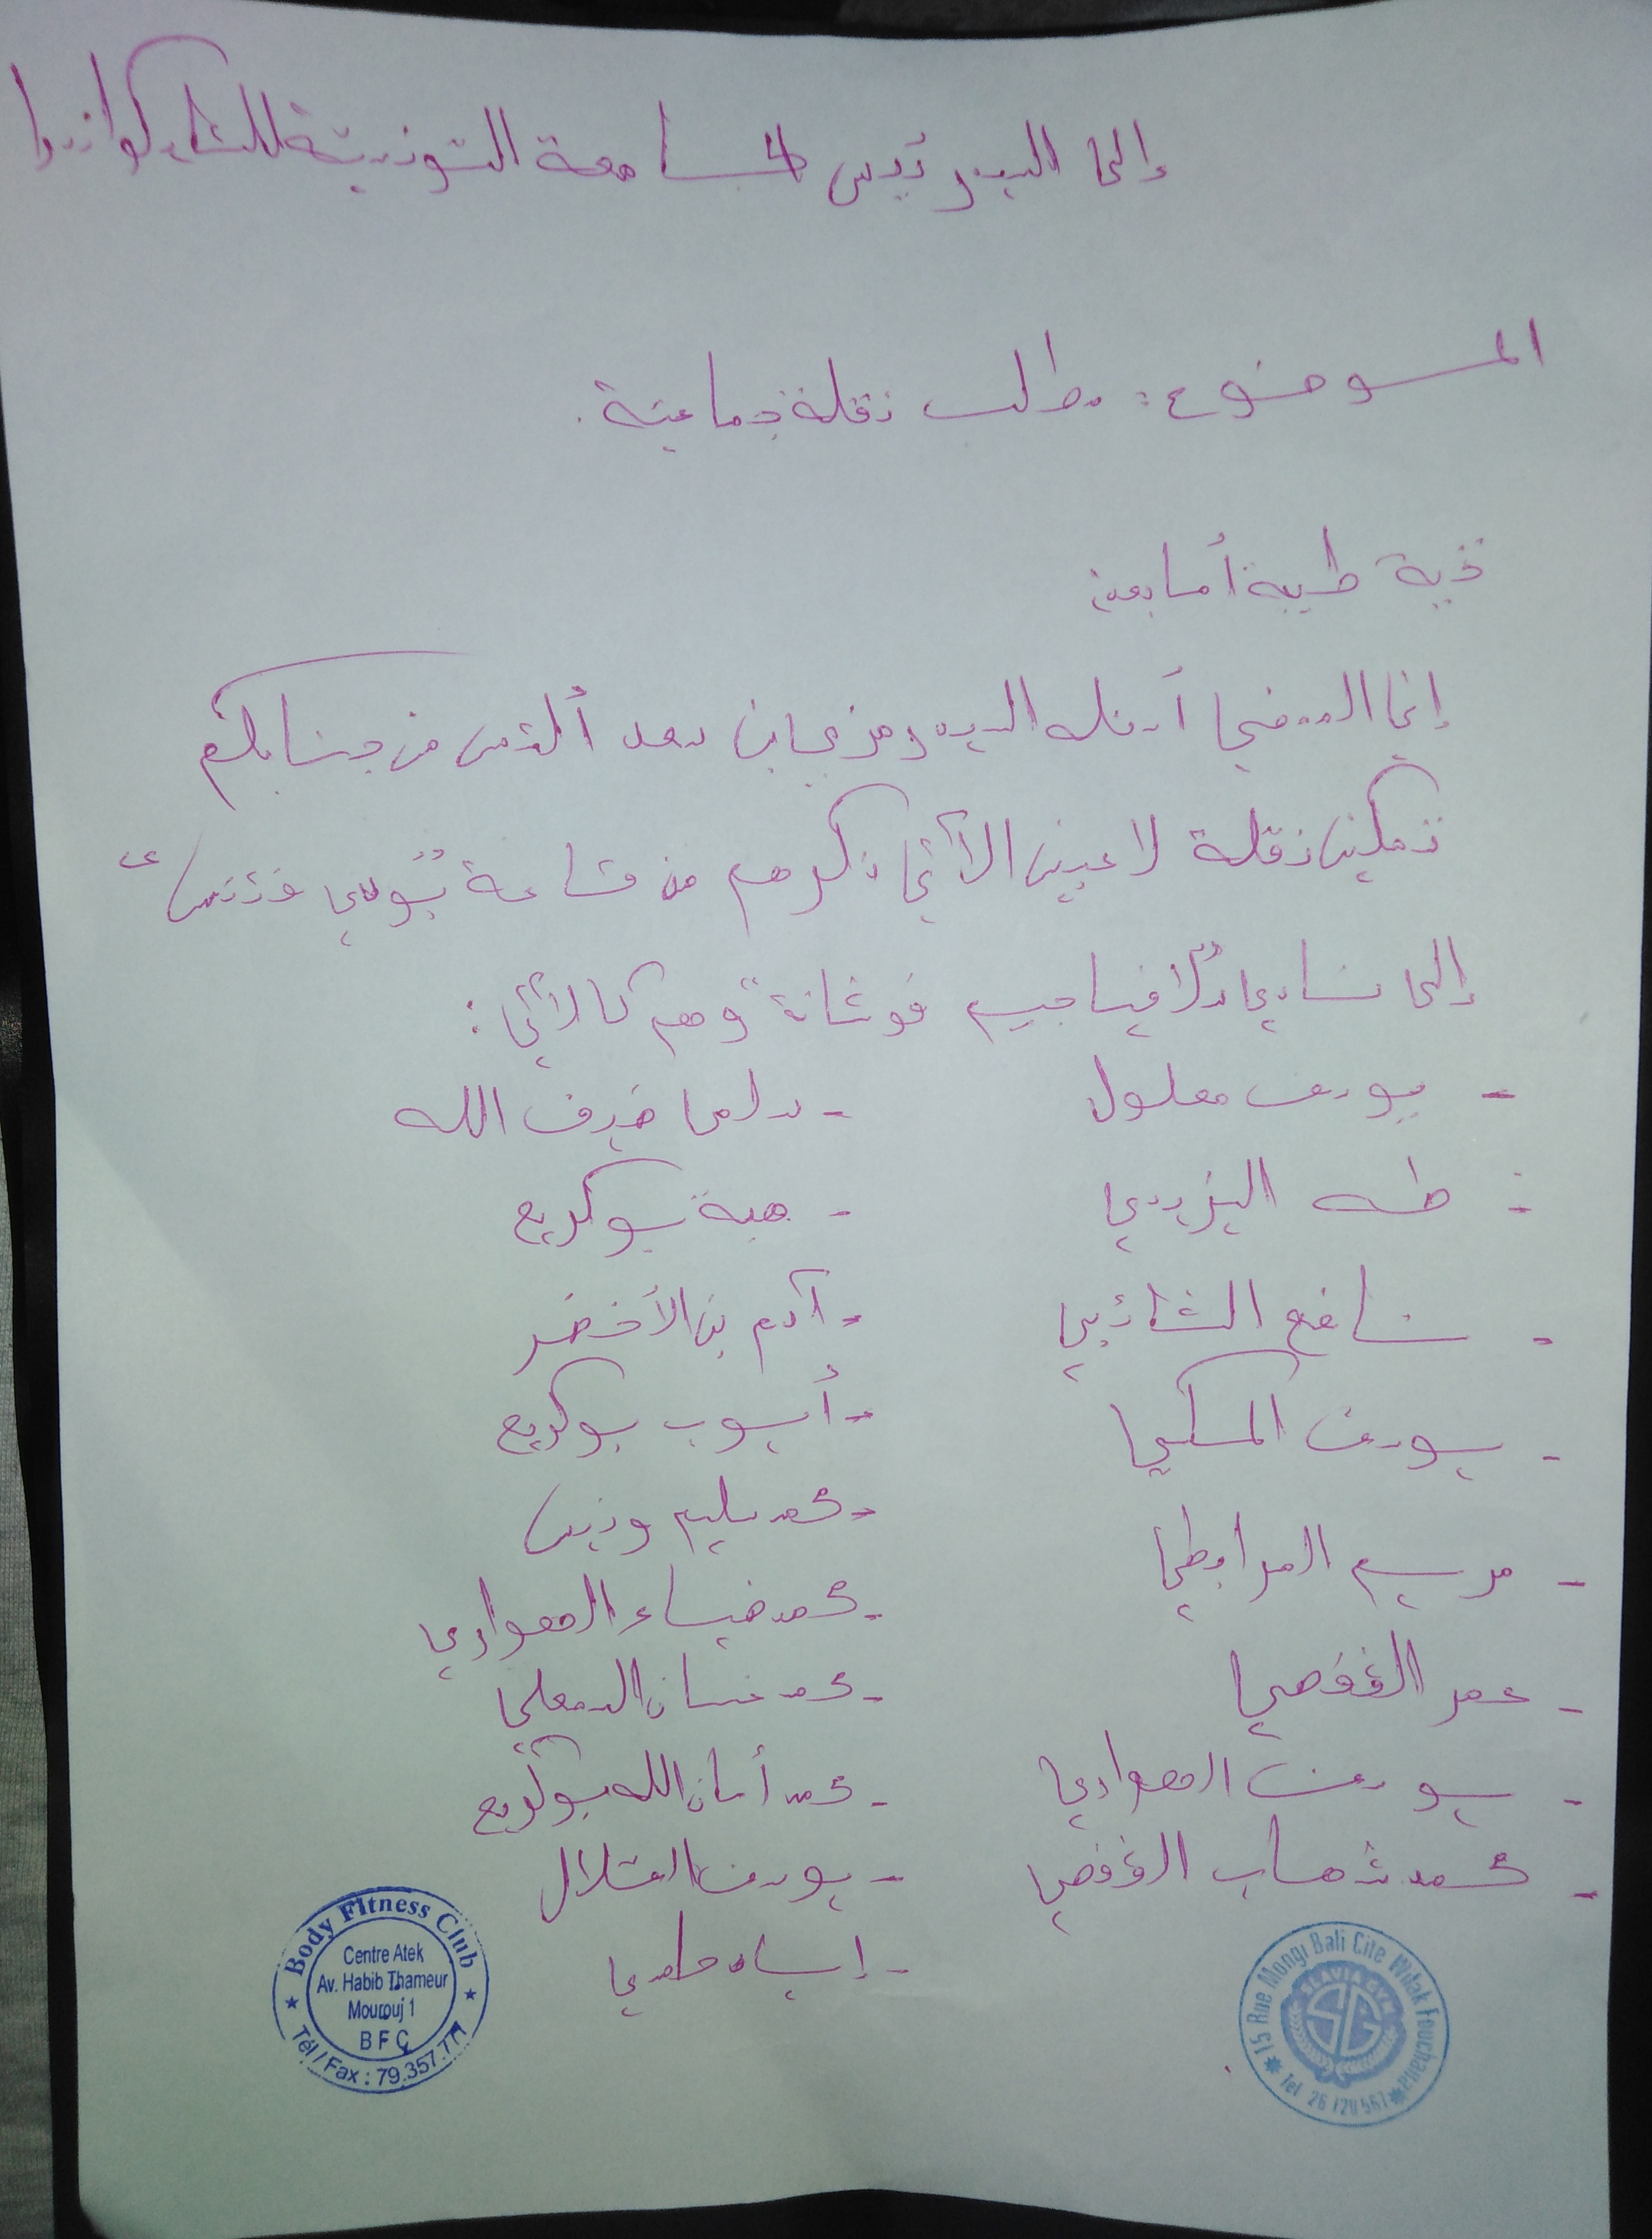 إلى السيد رئيس الجامعة التونسية للتايكواندو
الموضوع: مطلب نقلة جماعية.
تحية طيبة أما بعد
إني الممضي أسفله السيد بعد ألتمس من جنابكم
تمكين نقلة لاعبين الآتي ذكرهم من قاعة "بودي فتنس"
إلى نادي "سلافيا جيم فوشانة" وهم كالآتي:
- يوسف معلول
- سلمى ضيف الله
- طه اليزيدي
- هبة بوكريع
- نافع الشائبي
- آدم بن الأخضر
- يوسف المسكي
- أيوب بوكريع
- مريم المرابطي
- محمد سليم ونيس
- عمر القفصي
- محمد ضياء الهواري
- يوسف الهواري
- محمد غسان الدمعلي
- محمد شهاب القفصي
- محمد أمان الله بوكريع
- يوسف القلال
- إياد حامدي
Body Fitness Club
Centre Atek
Av. Habib Thameur
Mourouj 1
BFC
Tél / Fax : 79.357.777
15 Rue Mongi Bali Cite Milak Fouchana
SLAVIA GYM
SG
Tel 26 120 567